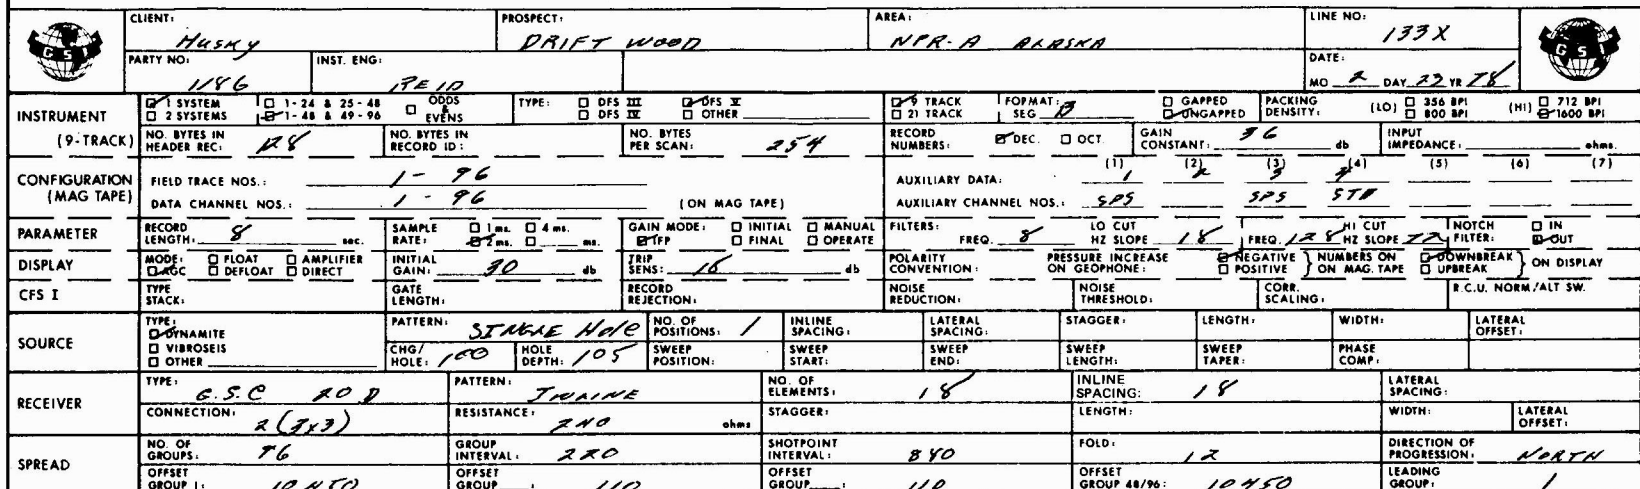 CLIENT: Husky PROSPECT: DRIFT WOOD AREA: NPR-A ALASKA LINE NO: 133X
GSI GSI
PARTY NO: 1186 INST. ENG: REID DATE: MO 2 DAY 23 YR 78
INSTRUMENT (9-TRACK) ☑ 1 SYSTEM ☐ 1-24 & 25-48 ☐ ODDS & EVENS TYPE: ☐ DFS III ☑ DFS V ☑ 9 TRACK FORMAT: ☐ GAPPED PACKING DENSITY: (LO) ☐ 356 BPI (HI) ☐ 712 BPI
☐ 2 SYSTEMS ☑ 1-48 & 49-96 ☐ DFS IV ☐ OTHER ☐ 21 TRACK SEG B ☑ UNGAPPED ☐ 800 BPI ☑ 1600 BPI
NO. BYTES IN HEADER REC: 128 NO. BYTES IN RECORD ID: NO. BYTES PER SCAN: 254 RECORD NUMBERS: ☑ DEC. ☐ OCT. GAIN CONSTANT: 36 db INPUT IMPEDANCE: ohms.
(1) (2) (3) (4) (5) (6) (7)
CONFIGURATION (MAG TAPE) FIELD TRACE NOS.: 1 - 96 AUXILIARY DATA: 1 2 3 4
DATA CHANNEL NOS.: 1 - 96 (ON MAG TAPE) AUXILIARY CHANNEL NOS.: SPS SPS STB
PARAMETER RECORD LENGTH: 8 sec. SAMPLE RATE: ☐ 1 ms. ☐ 4 ms. ☑ 2 ms. ☐ ms. GAIN MODE: ☐ INITIAL ☐ MANUAL ☑ IFP ☐ FINAL ☐ OPERATE FILTERS: FREQ. 8 LO CUT HZ SLOPE 18 FREQ. 128 HI CUT HZ SLOPE 72 NOTCH FILTER: ☐ IN ☑ OUT
DISPLAY MODE: ☐ FLOAT ☐ AMPLIFIER ☑ AGC ☐ DEFLOAT ☐ DIRECT INITIAL GAIN: 30 db TRIP SENS: 18 db POLARITY CONVENTION: PRESSURE INCREASE ON GEOPHONE: ☑ NEGATIVE ☐ POSITIVE } NUMBERS ON ON MAG. TAPE ☑ DOWNBREAK ☐ UPBREAK } ON DISPLAY
CFS I TYPE STACK: GATE LENGTH: RECORD REJECTION: NOISE REDUCTION: NOISE THRESHOLD: CORR. SCALING: R.C.U. NORM/ALT SW.
SOURCE TYPE: ☑ DYNAMITE ☐ VIBROSEIS ☐ OTHER PATTERN: SINGLE Hole NO. OF POSITIONS: 1 INLINE SPACING: LATERAL SPACING: STAGGER: LENGTH: WIDTH: LATERAL OFFSET:
CHG/HOLE: 100 HOLE DEPTH: 105 SWEEP POSITION: SWEEP START: SWEEP END: SWEEP LENGTH: SWEEP TAPER: PHASE COMP:
RECEIVER TYPE: G.S.C 20 D PATTERN: INLINE NO. OF ELEMENTS: 18 INLINE SPACING: 18 LATERAL SPACING:
CONNECTION: 2 (3x3) RESISTANCE: 240 ohms STAGGER: LENGTH: WIDTH: LATERAL OFFSET:
SPREAD NO. OF GROUPS: 96 GROUP INTERVAL: 220 SHOTPOINT INTERVAL: 880 FOLD: 12 DIRECTION OF PROGRESSION: NORTH
OFFSET GROUP 1: 10450 OFFSET GROUP : 110 OFFSET GROUP : 110 OFFSET GROUP 48/96: 10450 LEADING GROUP: 1